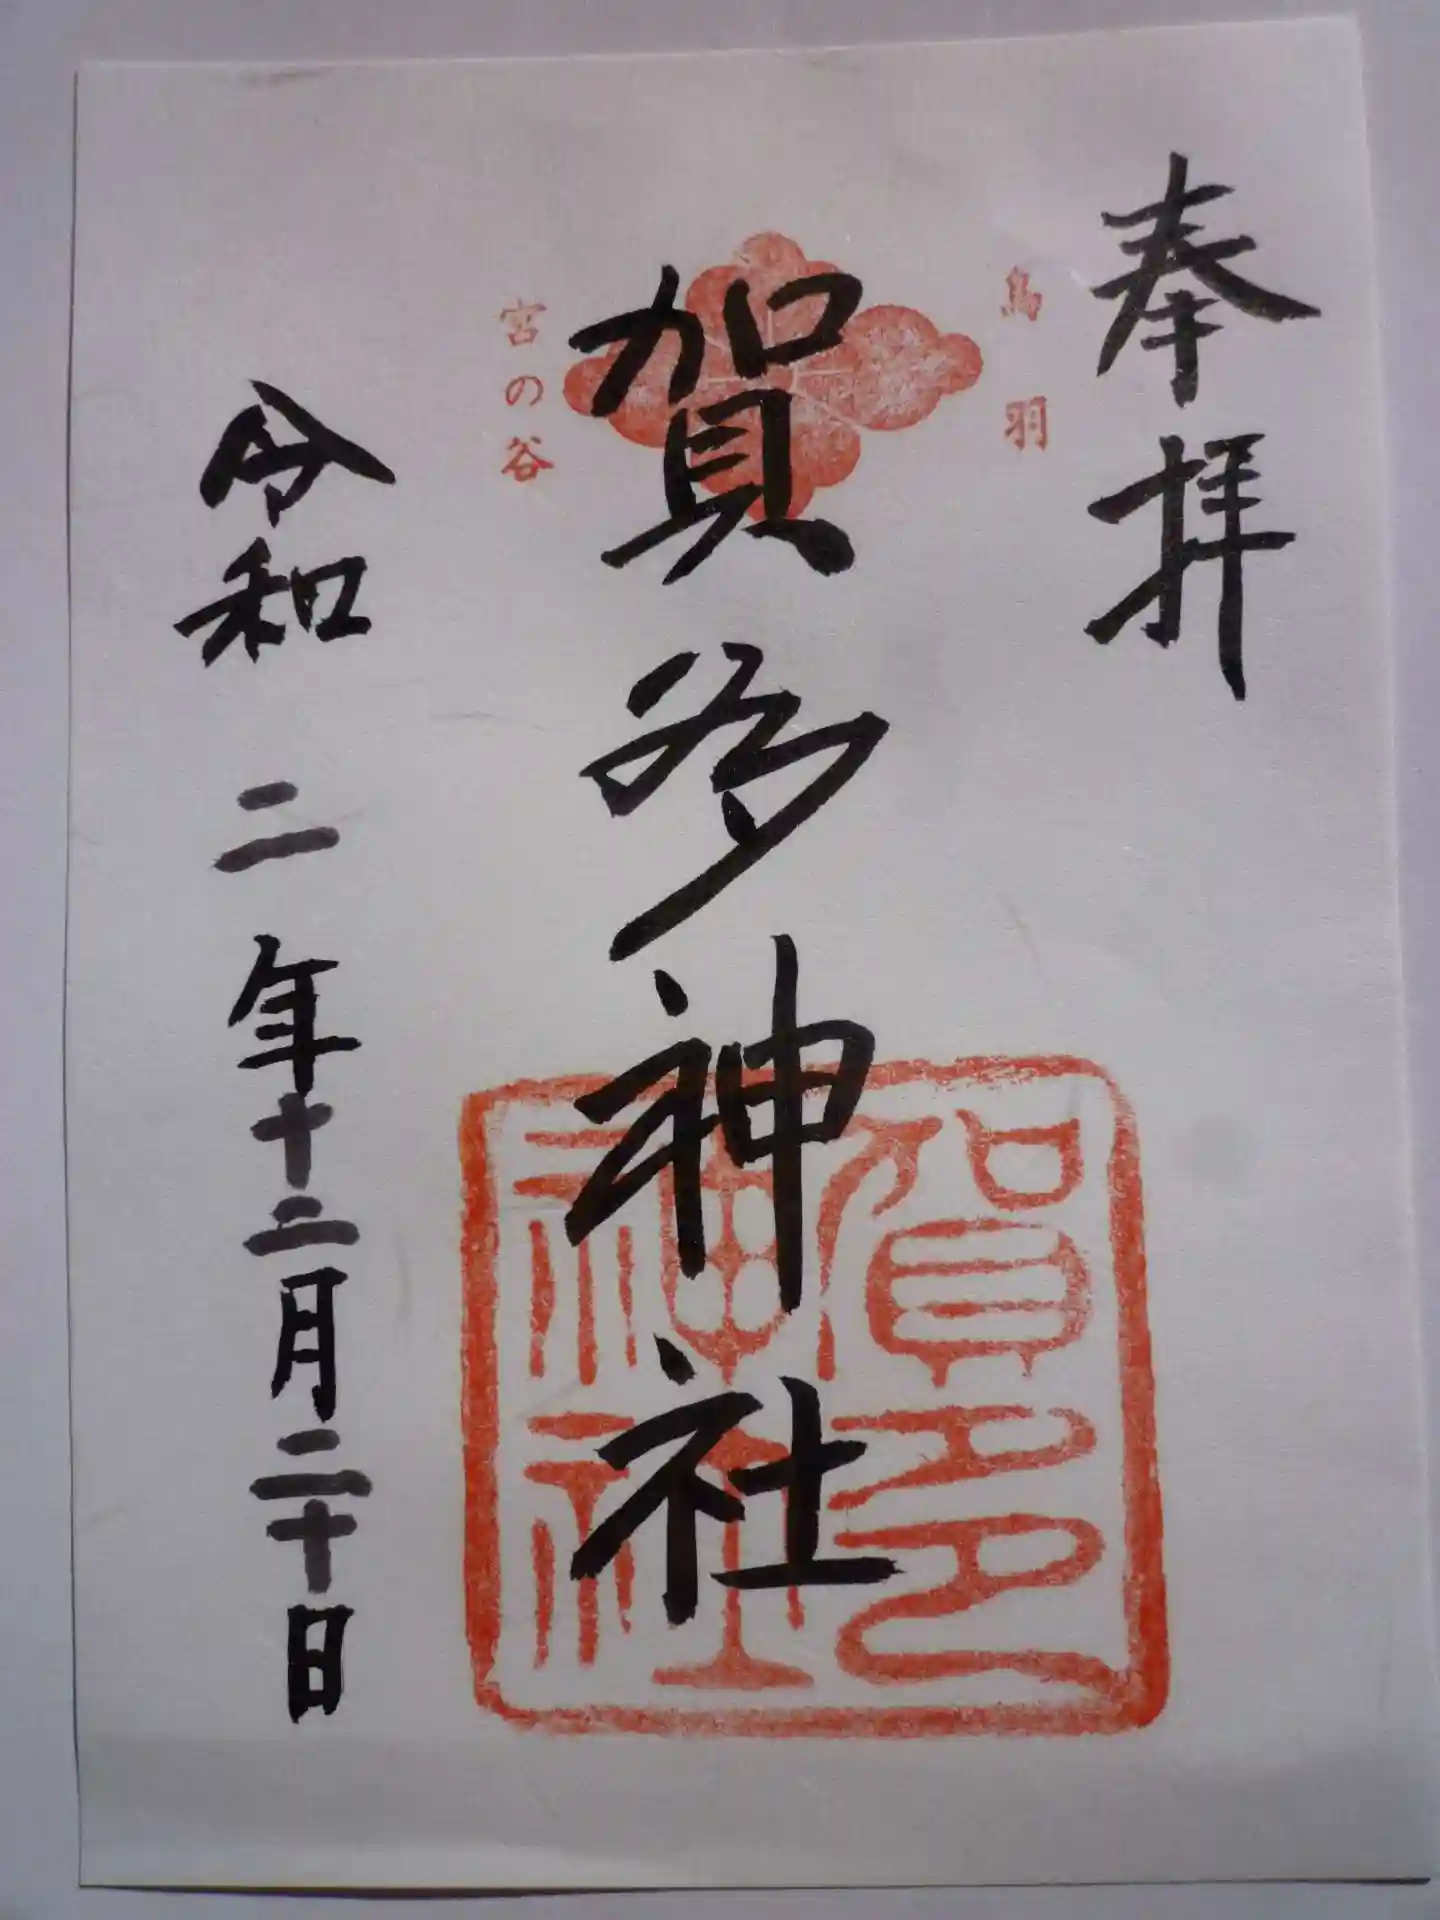 奉拝
鳥羽
賀多神社
宮の谷
賀多神社
令和二年十二月二十日